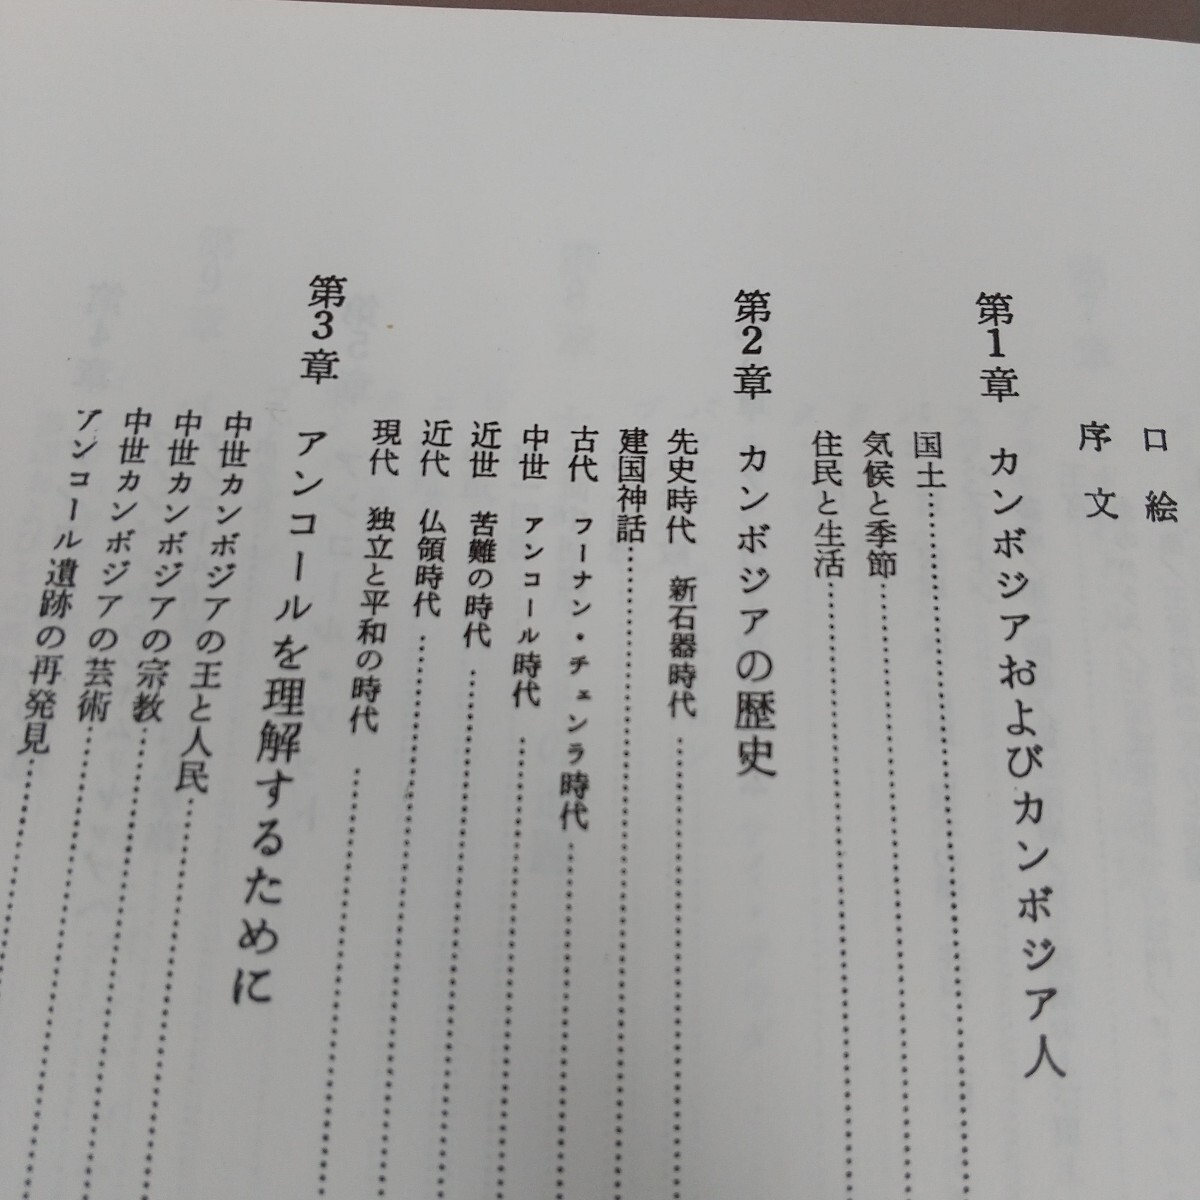 口絵
序文
第1章 カンボジアおよびカンボジア人
国土
気候と季節
住民と生活
第2章 カンボジアの歴史
先史時代 新石器時代
建国神話
古代 フーナン・チェンラ時代
中世 アンコール時代
近世 苦難の時代
近代 仏領時代
現代 独立と平和の時代
第3章 アンコールを理解するために
中世カンボジアの王と人民
中世カンボジアの宗教
中世カンボジアの芸術
アンコール遺跡の再発見